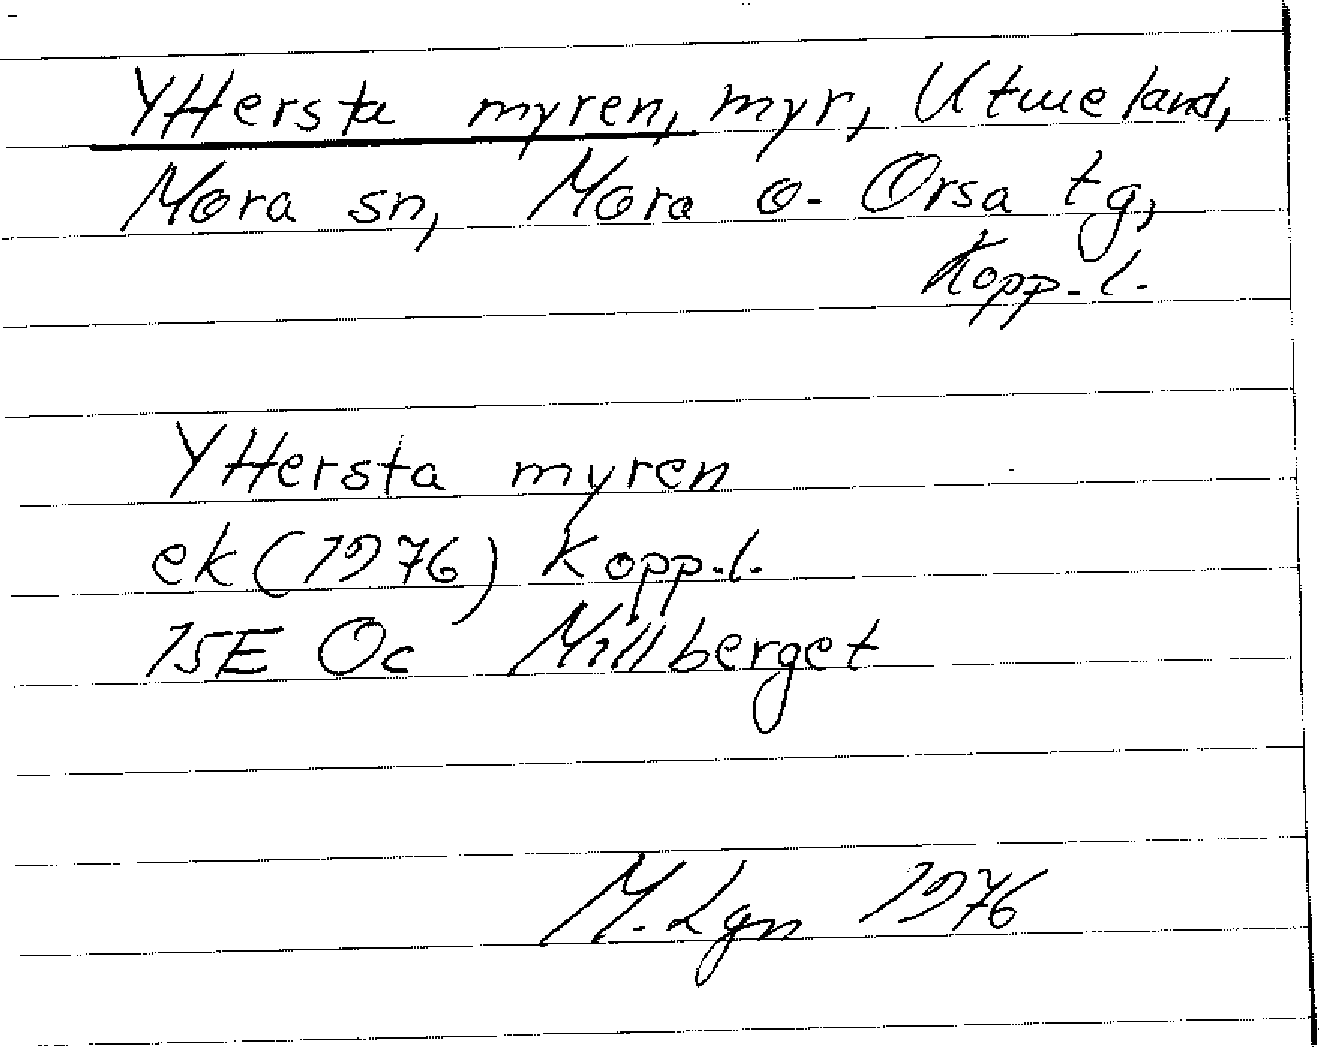 Yttersta myren, myr, Utmeland,
Mora sn, Mora o. Orsa tg,
Kopp. l.
Yttersta myren
ek (1976) Kopp. l.
15E 0c Millberget
M. Lgn 1976